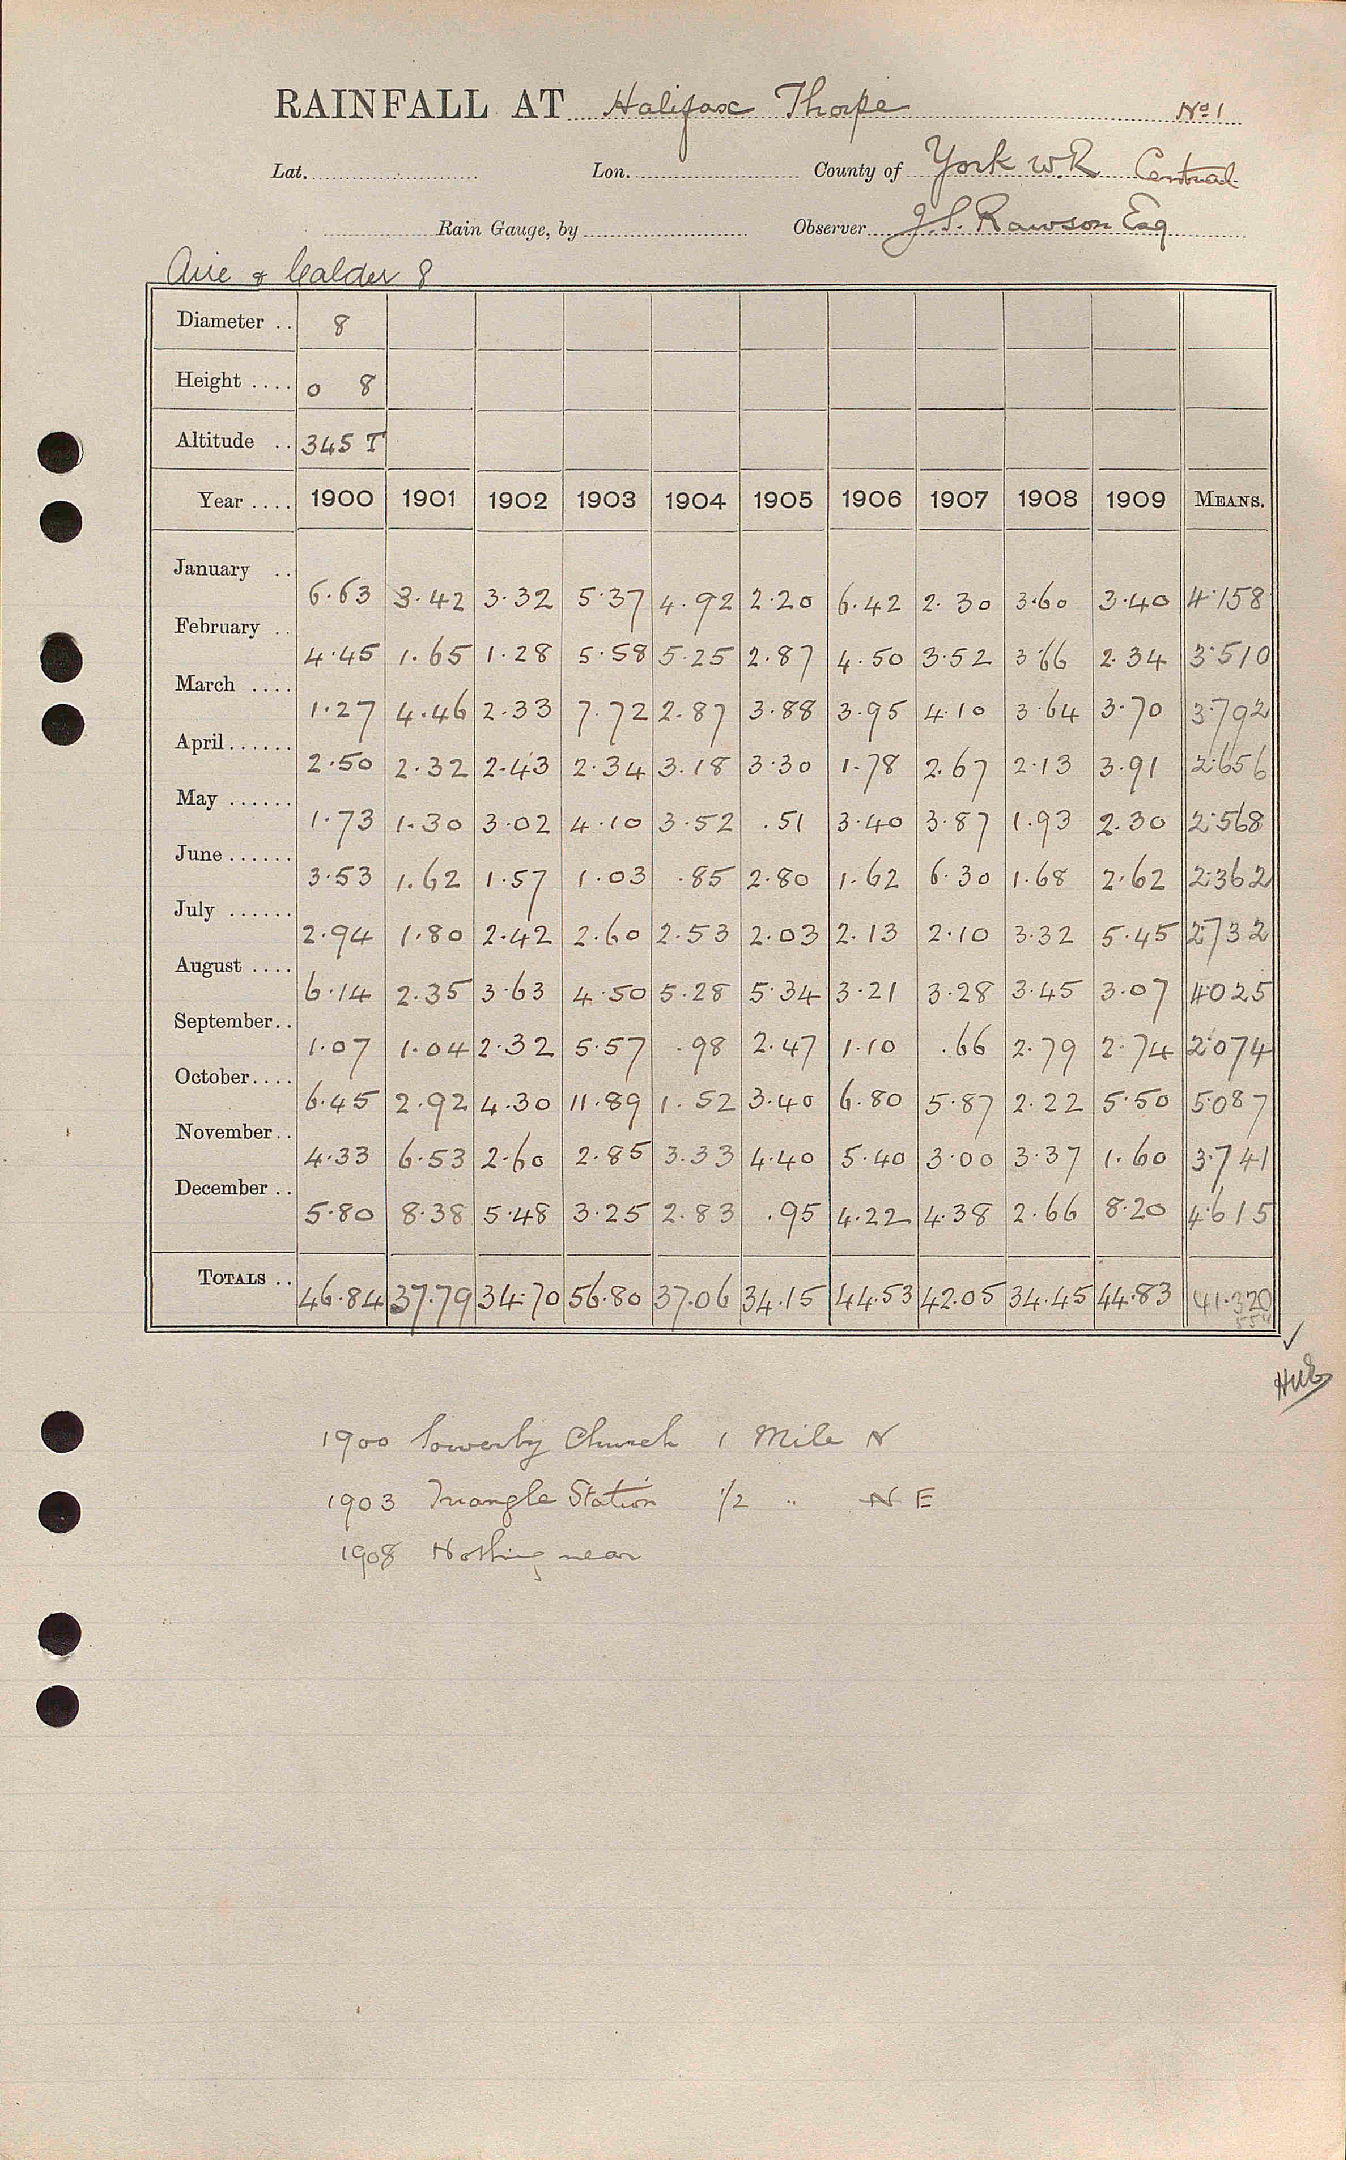 RAINFALL AT Halifax Thorpe No 1
Lat. Lon. County of York W.R Central
Rain Gauge, by Observer J.S. Rawson Esq
Aire & Calder 8
Diameter .. 8
Height .... 0 8
Altitude .. 345 T
Year .... 1900 1901 1902 1903 1904 1905 1906 1907 1908 1909 MEANS.
January .. 6.63 3.42 3.32 5.37 4.92 2.20 6.42 2.30 3.60 3.40 4.158
February .. 4.45 1.65 1.28 5.58 5.25 2.87 4.50 3.52 3.66 2.34 3.510
March .... 1.27 4.46 2.33 7.72 2.87 3.88 3.95 4.10 3.64 3.70 3.792
April ...... 2.50 2.32 2.43 2.34 3.18 3.30 1.78 2.67 2.13 3.91 2.656
May ...... 1.73 1.30 3.02 4.10 3.52 .51 3.40 3.87 1.93 2.30 2.568
June ...... 3.53 1.62 1.57 1.03 .85 2.80 1.62 6.30 1.68 2.62 2.362
July ...... 2.94 1.80 2.42 2.60 2.53 2.03 2.13 2.10 3.32 5.45 2.732
August .... 6.14 2.35 3.63 4.50 5.28 5.34 3.21 3.28 3.45 3.07 4.025
September .. 1.07 1.04 2.32 5.57 .98 2.47 1.10 .66 2.79 2.74 2.074
October .... 6.45 2.92 4.30 11.89 1.52 3.40 6.80 5.87 2.22 5.50 5.087
November .. 4.33 6.53 2.60 2.85 3.33 4.40 5.40 3.00 3.37 1.60 3.741
December .. 5.80 8.38 5.48 3.25 2.83 .95 4.22 4.38 2.66 8.20 4.615
TOTALS .. 46.84 37.79 34.70 56.80 37.06 34.15 44.53 42.05 34.45 44.83 41.320
1900 Sowerby Church 1 Mile N
1903 Triangle Station 1/2 " N E
1908 Nothing near